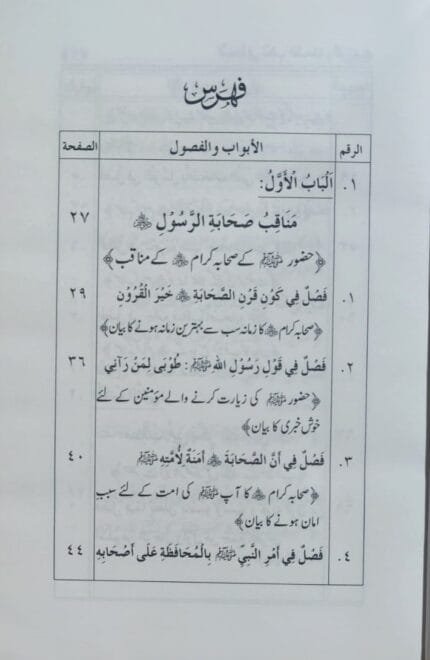 فہرس
الرقم الأبواب والفصول الصفحة
١. اَلْبَابُ الْأَوَّلُ:
مَنَاقِبُ صَحَابَةِ الرَّسُوْلِ ﷺ ٢٧
﴿حضور ﷺ کے صحابہ کرام ﷢ کے مناقب﴾
١. فَصْلٌ فِي كَوْنِ قَرْنِ الصَّحَابَةِ ﷢ خَيْرَ الْقُرُوْنِ ٢٩
﴿صحابہ کرام ﷢ کا زمانہ سب سے بہترین زمانہ ہونے کا بیان﴾
٢. فَصْلٌ فِي قَوْلِ رَسُوْلِ اللهِ ﷺ: طُوْبَى لِمَنْ رَآنِي ٣٦
﴿حضور ﷺ کی زیارت کرنے والے مؤمنین کے لئے
خوش خبری کا بیان﴾
٣. فَصْلٌ فِي أَنَّ الصَّحَابَةَ ﷢ أَمَنَةٌ لِأُمَّتِهِ ﷺ ٤٠
﴿صحابہ کرام ﷢ کا آپ ﷺ کی امت کے لئے سبب
امان ہونے کا بیان﴾
٤. فَصْلٌ فِي أَمْرِ النَّبِيِّ ﷺ بِالْمُحَافَظَةِ عَلَى أَصْحَابِهِ ٤٤